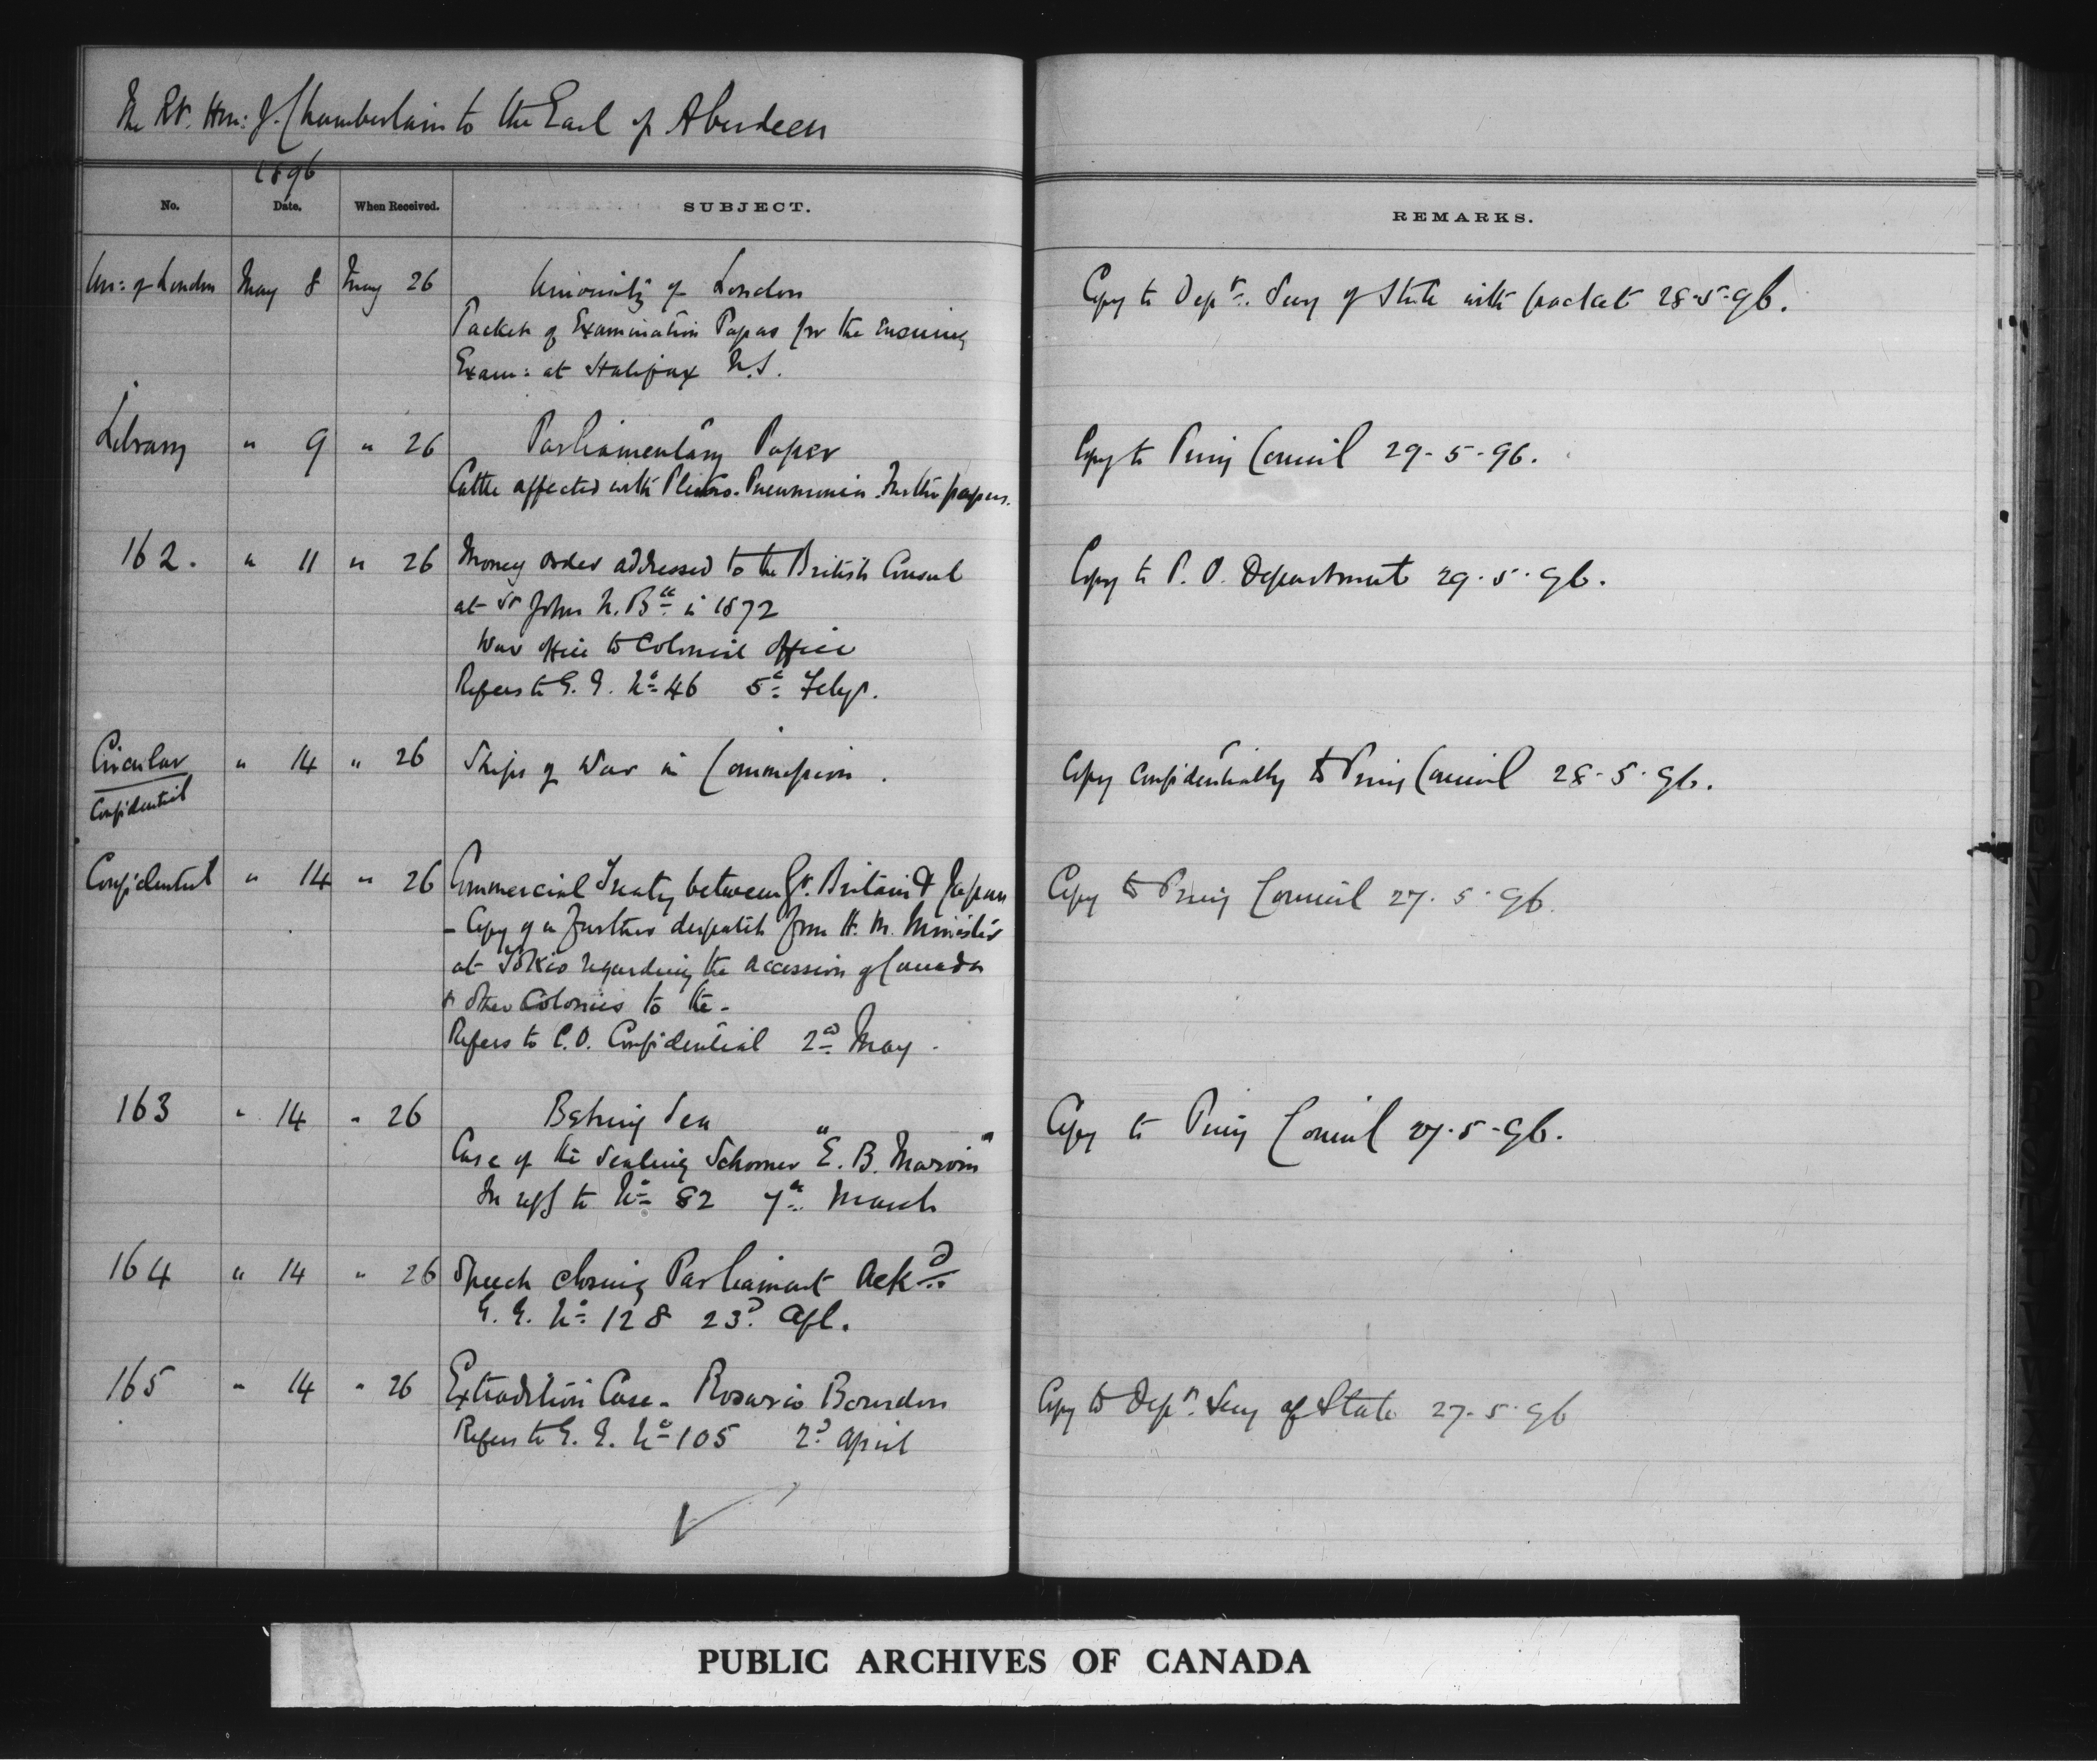 The Rt. Hon: J. Chamberlain to the Earl of Aberdeen
1896
No. Date. When Received. SUBJECT. REMARKS.
Un: of London May 8 May 26 University of London Copy to Dept. Secy of State with packet 28-5-96.
Packet of Examination Papers for the ensuing
Exam: at Halifax N.S.
Library " 9 " 26 Parliamentary Paper Copy to Privy Council 29-5-96.
Cattle affected with Pleuro-Pneumonia. Further papers.
162. " 11 " 26 Money order addressed to the British Consul Copy to P. O. Department 29.5.96.
at St John N. Bk in 1872
War Office to Colonial Office
Refers to G. G. No 46 5th Feby.
Circular " 14 " 26 Ships of War in Commission. Copy confidentially to Privy Council 28-5.96.
Confidential
Confidential " 14 " 26 Commercial Treaty between Gt. Britain & Japan Copy to Privy Council 27.5.96.
- Copy of a further despatch from H. M. Minister
at Tokio regarding the accession of Canada
& other Colonies to the -
Refers to C.O. Confidential 2nd May.
163 " 14 " 26 Behring Sea Copy to Privy Council 27.5-96.
Case of the Sealing Schooner "E. B. Marvin"
In refce to No 82 7th March
164 " 14 " 26 Speech closing Parliament Ackd
G. G. No 128 23d Apl.
165 " 14 " 26 Extradition Case - Rosario Bourdon Copy to Dept. Secy of State 27-5-96
Refers to G. G. No 105 2d April
PUBLIC ARCHIVES OF CANADA